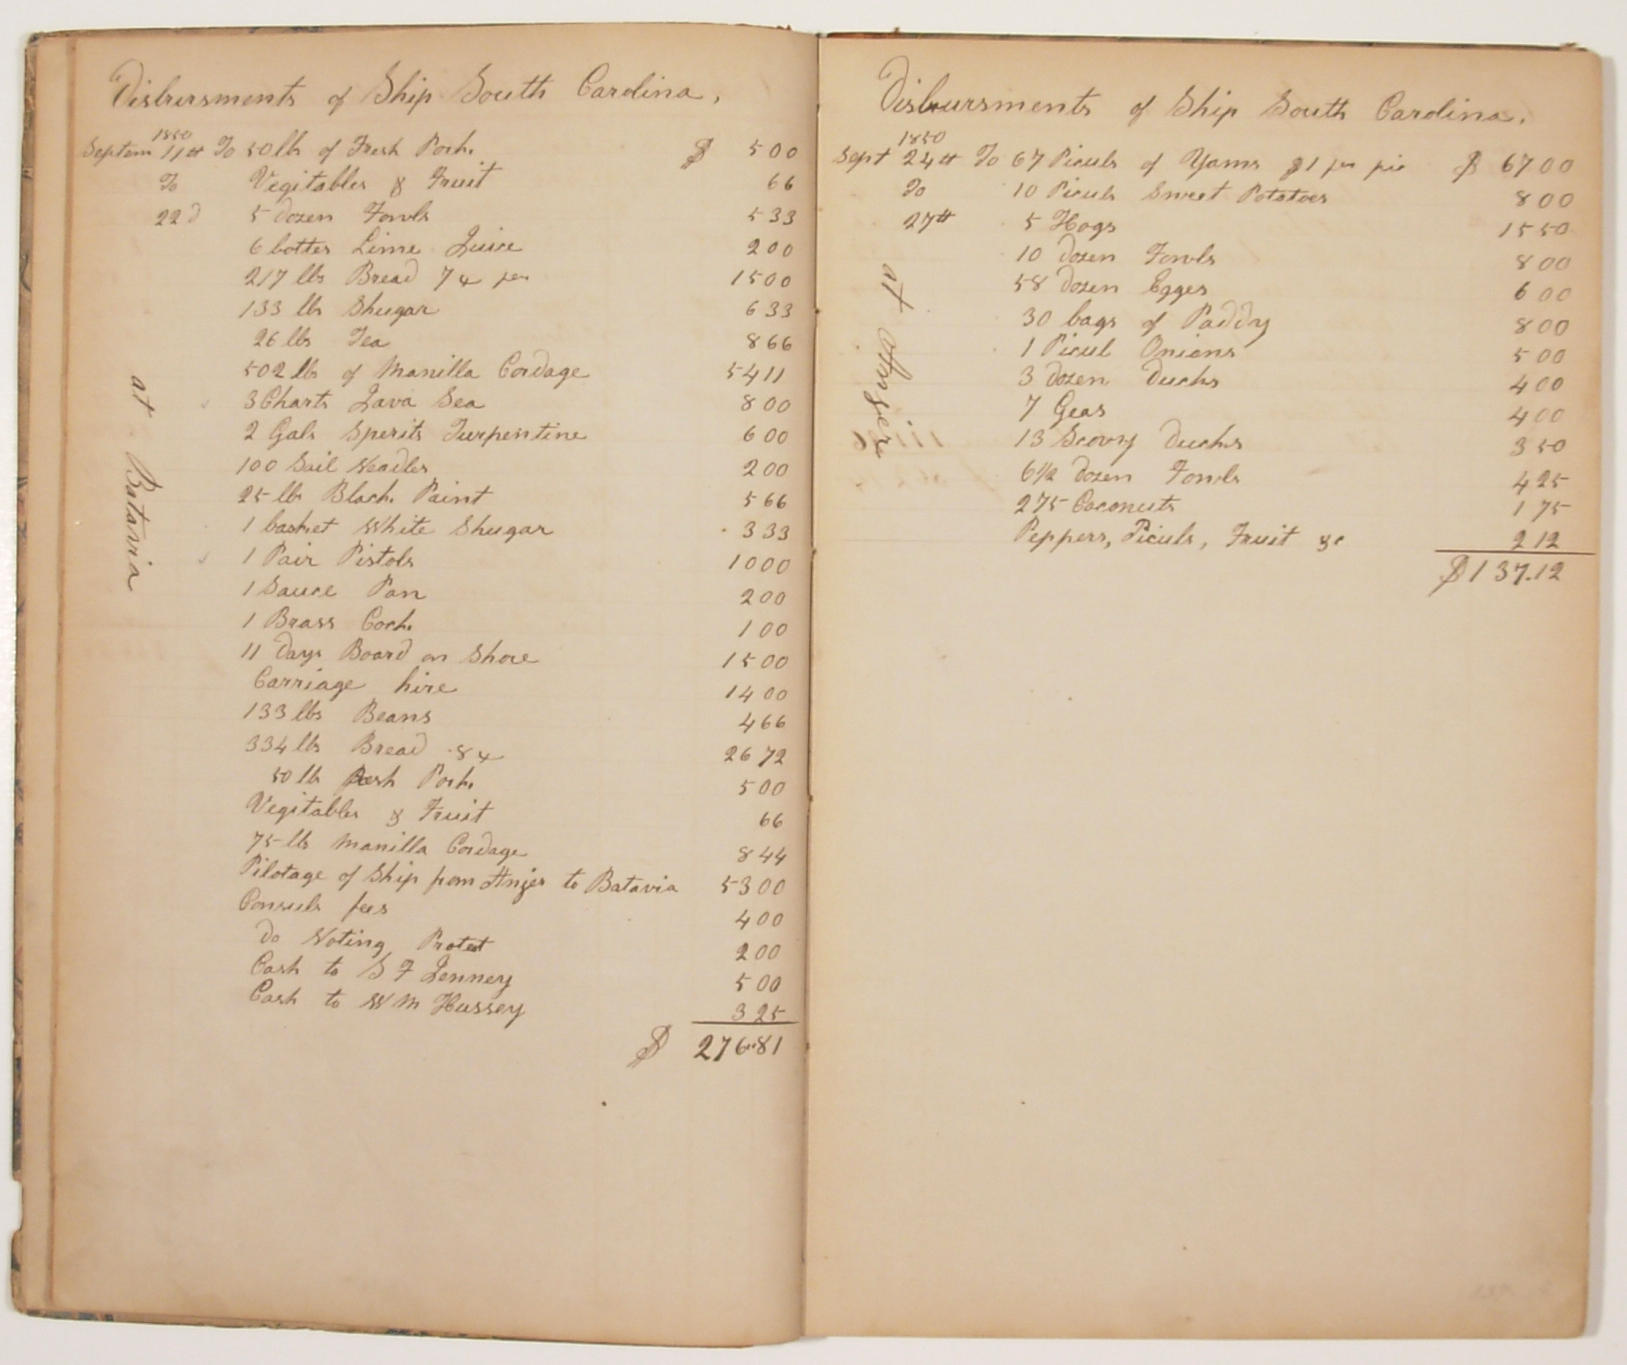 Disbursments of Ship South Carolina,
1850
Septem 11th To 50 lb of Fresh Pork $ 500
To Vegitables & Fruit 66
22d 5 Dozen Fowls 533
6 bottes Lime Juice 200
217 lbs Bread 7 4 per 1500
133 lb Shugar 633
26 lbs Tea 866
502 lbs of Manilla Cordage 5411
3 Charts Java Sea 800
2 Gals Sperits Turpentine 600
100 Sail Neadles 200
25 lb Black Paint 566
1 basket White Shugar 333
1 Pair Pistols 1000
1 Sauce Pan 200
1 Brass Cock 100
11 Days Board on Shore 1500
Carriage hire 1400
133 lbs Beans 466
334 lbs Bread 8 4 2672
50 lb Fresh Pork 500
Vegitables & Fruit 66
75 lbs Manilla Cordage 844
Pilotage of Ship from Anjer to Batavia 5300
Consuls fees 400
Do Noting Protest 200
Cash to S F Jenney 500
Cash to W M Hussey 325
$ 276.81
at Batavia
Disbursments of Ship South Carolina.
1850
Sept 24th To 67 Piculs of Yams $1 per pic $ 6700
To 10 Piculs Sweet Potatoes 800
27th 5 Hogs 1550
10 dozen Fowls 800
58 Dozen Egges 600
30 bags of Paddy 800
1 Picul Onions 500
3 dozen Ducks 400
7 Geas 400
13 Scovy Ducks 350
6 1/2 Dozen Fowls 425
275 Coconuts 175
Peppers, Piculs, Fruit &c 212
$137.12
at Anjer